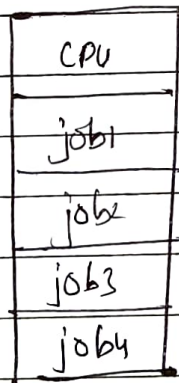 CPU
job1
job2
job3
job4